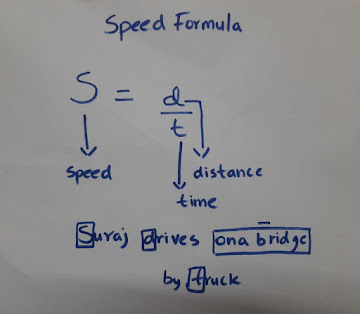 Speed Formula
S = d/t
speed
distance
time
Suraj drives on a bridge
by truck